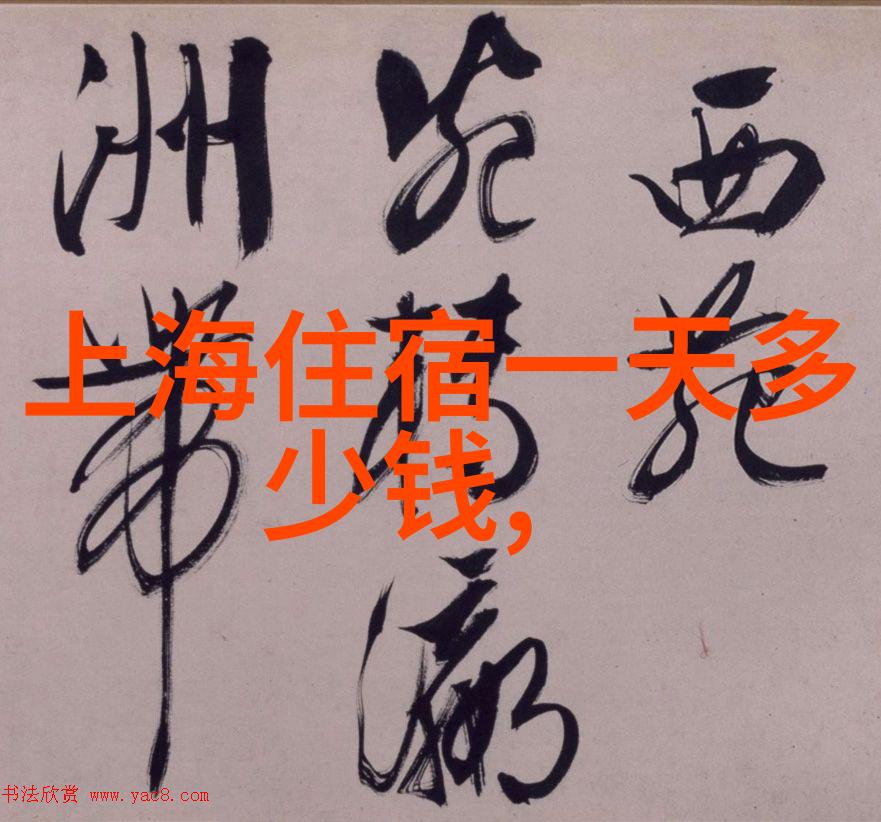 上海住宿一天多
少钱，
西苑
瀛
洲帶
书法欣赏 www.yac8.com